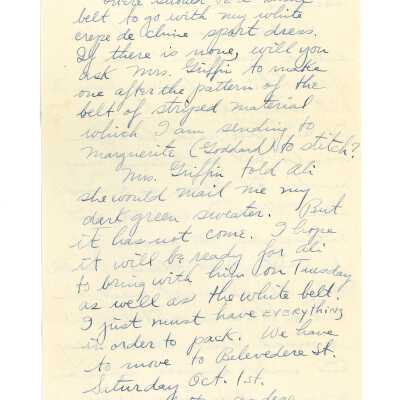 There should be a white
belt to go with my white
crepe de chine sport dress.
If there is none, will you
ask Mrs. Griffin to make
one after the pattern of the
belt of striped material
which I am sending to
Marguerite (Goddard) to stitch?
Mrs. Griffin told Ali
she would mail me my
dark green sweater. But
it has not come. I hope
it will be ready for Ali
to bring with him on Tuesday
as well as the white belt.
I just must have EVERYTHING
in order to pack. We have
to move to Belevedere St.
Saturday Oct. 1st.